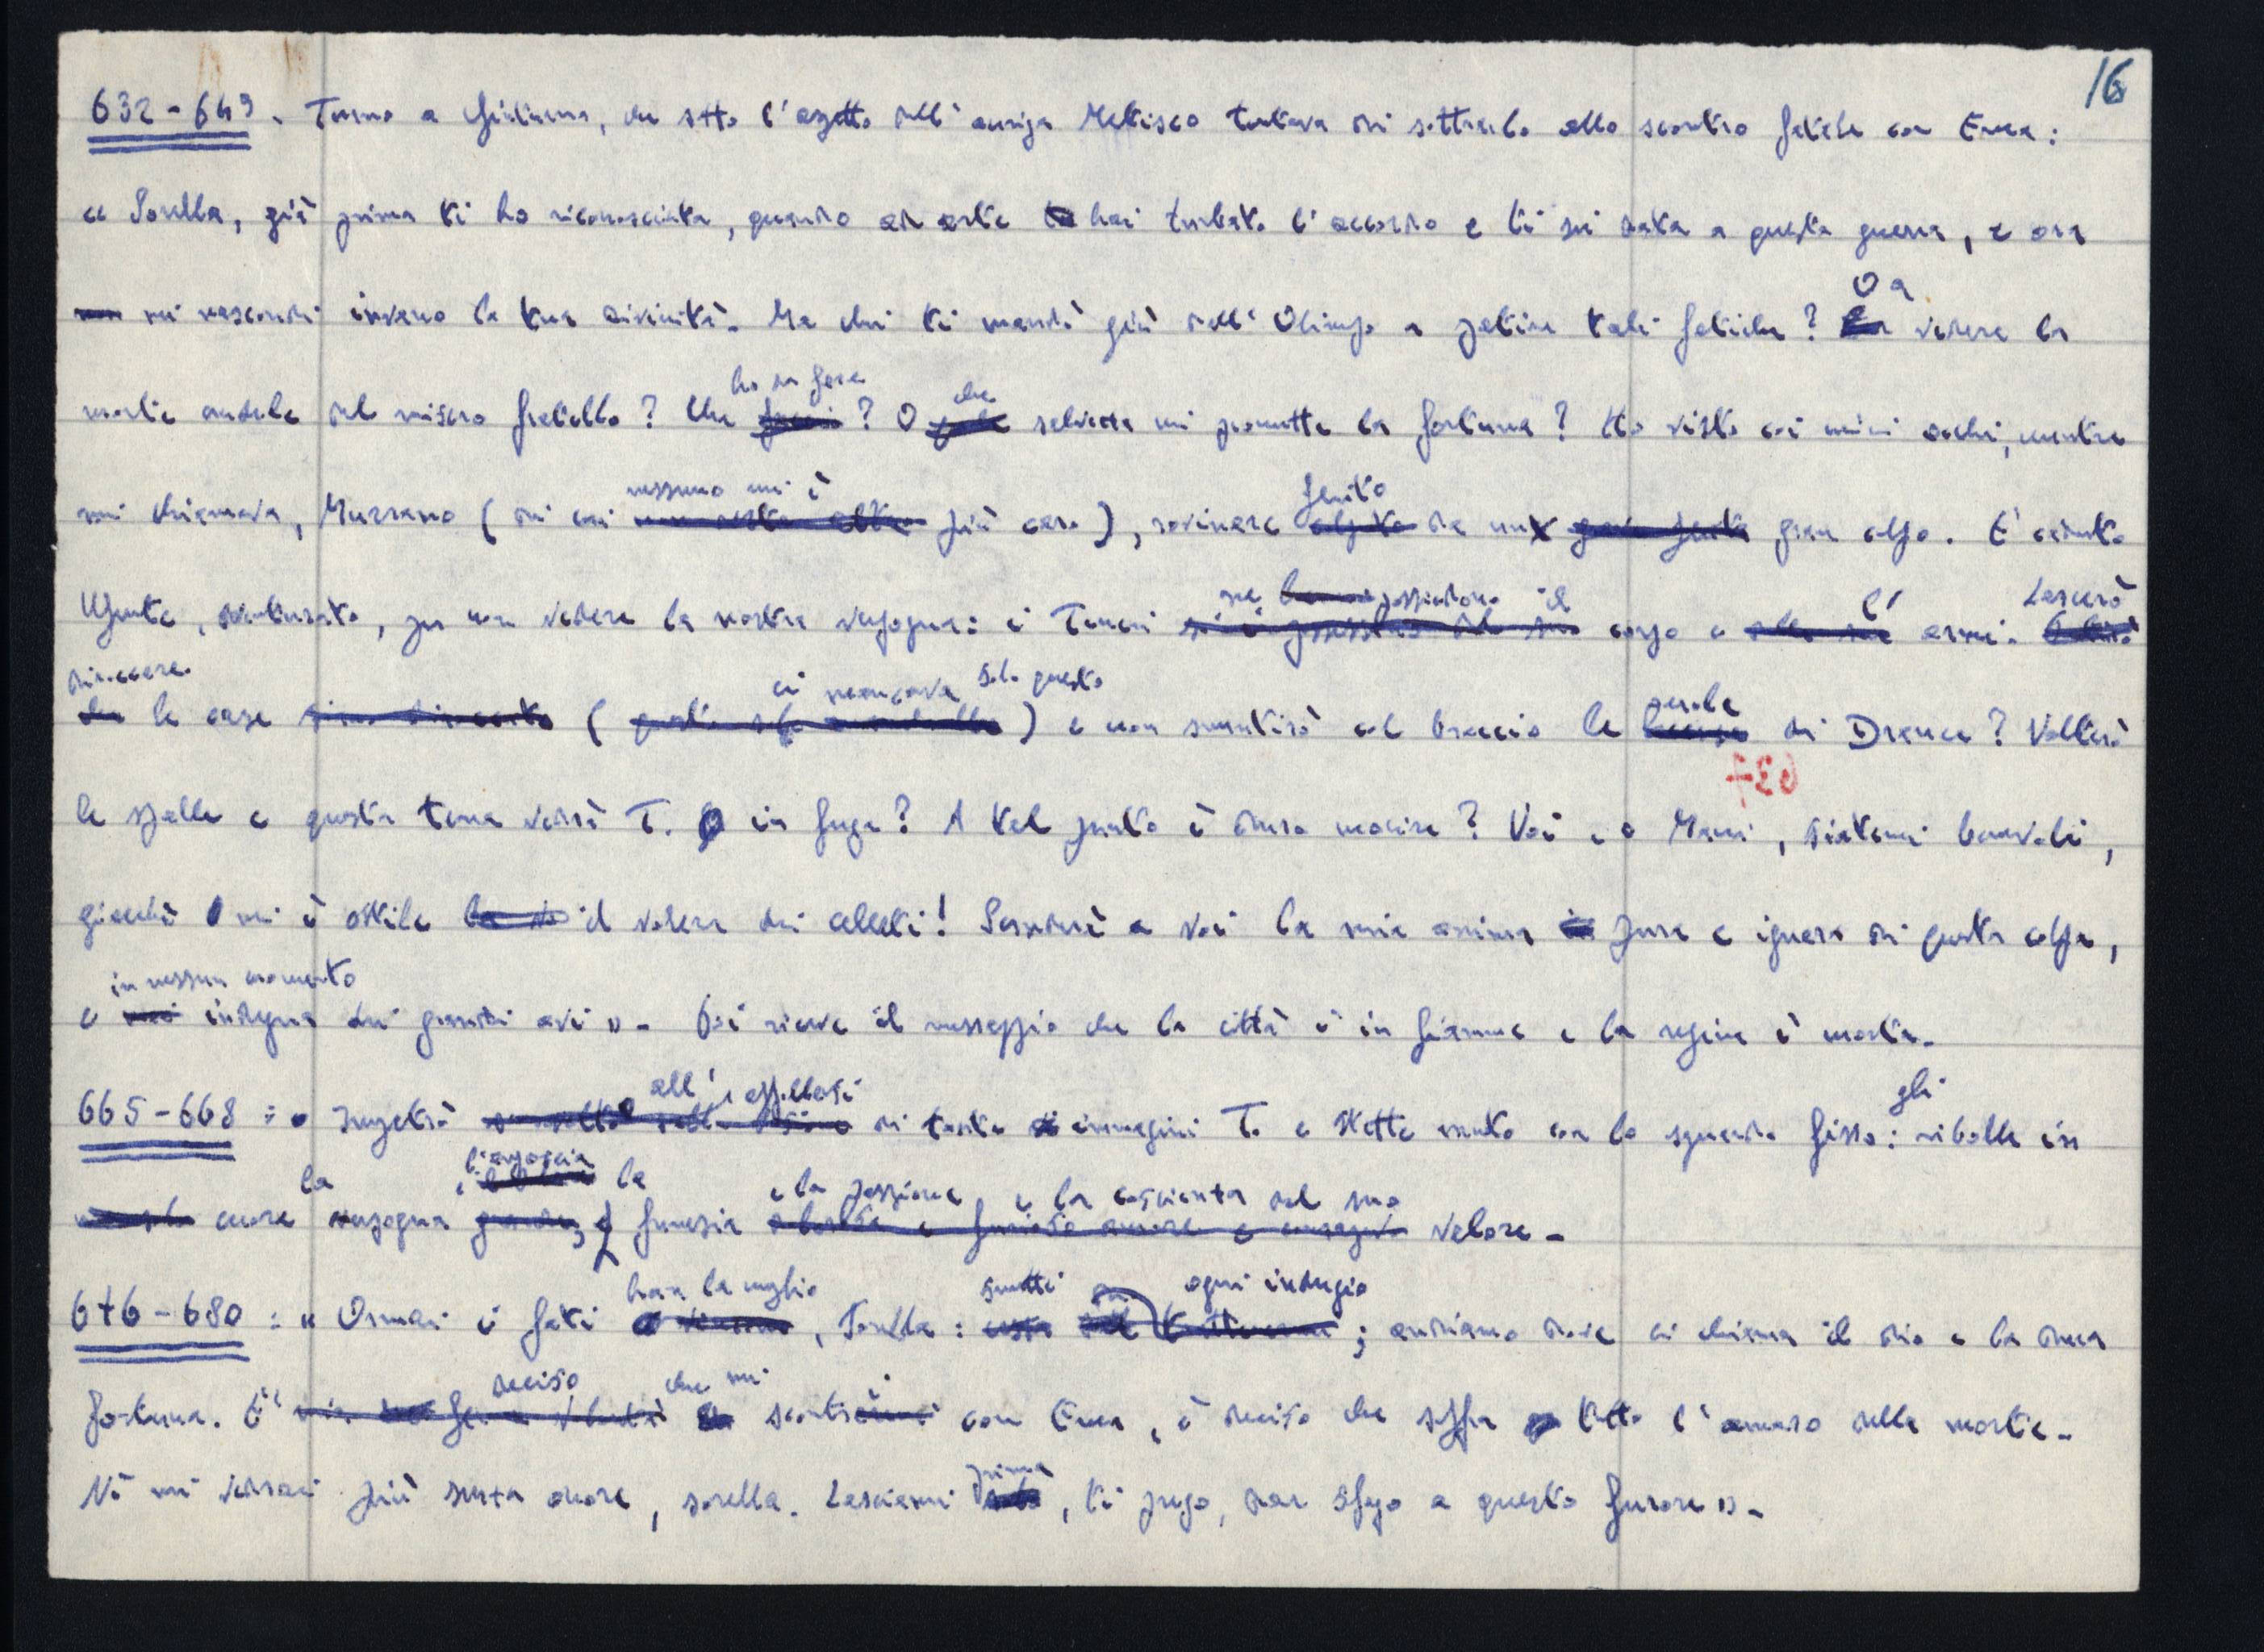 16
632-649. Turno a Giuturna, che sotto l'aspetto dell'auriga Metisco tentava di sottrarlo allo scontro fatale con Enea:
« Sorella, già prima ti ho riconosciuta, quando ad arte hai turbato l'accordo e ti sei data a questa guerra, e ora
non mi nascondi invano la tua divinità. Ma chi ti mandò giù dall'Olimpo a patire tali fatiche? O a vedere la
morte crudele del misero fratello? Che ho da fare? O che salvezza mi promette la fortuna? Ho visto coi miei occhi, mentre
mi chiamava, Murrano (di cui nessuno mi è più caro), rovinare finito da un gran colpo. E' caduto
Ufente, sventurato, per non vedere la nostra vergogna: i Teucri ne possiedono il corpo e l'armi. Lascerò
distruggere le case (ci mancava solo questo) e non smentirò col braccio le parole di Drance? Volterò
le spalle e questa terra vedrà T. in fuga? A tal punto è duro morire? Voi, o Mani, siatemi benevoli,
giacché mi è ostile il volere dei celesti! Scenderà a voi la mia anima pura e ignara di questa colpa,
e in nessun momento indegna dei grandi avi ». Poi riceve il messaggio che la città è in fiamme e la regina è morta.
665-668: Impetrò all'affollarsi di tante immagini T. e stette muto con lo sguardo fisso: gli ribolle in
cuore la vergogna, l'angoscia, la furia e la passione e la coscienza del suo valore.
676-680: « Ormai i fati han la meglio, Sorella: smetti ogni indugio; andiamo dove ci chiama il dio e la dura
fortuna. E' deciso che mi scontri con Enea, è deciso che soffra tutto l'amaro della morte.
Né mi vedrai più senza onore, sorella. Lasciami prima, ti prego, dar sfogo a questo furore ».